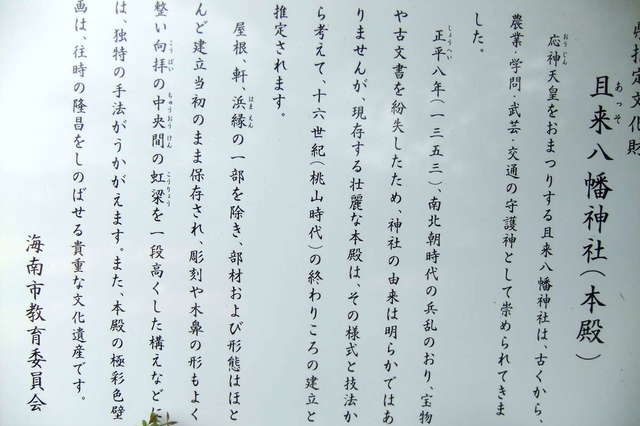 県指定文化財
且来八幡神社(本殿)
応神天皇をおまつりする且来八幡神社は、古くから、
農業・学問・武芸・交通の守護神として崇められてきま
した。
正平八年(一三五三)、南北朝時代の兵乱のおり、宝物
や古文書を紛失したため、神社の由来は明らかではあ
りませんが、現存する壮麗な本殿は、その様式と技法か
ら考えて、十六世紀(桃山時代)の終わりころの建立と
推定されます。
屋根、軒、浜縁の一部を除き、部材および形態はほと
んど建立当初のまま保存され、彫刻や木鼻の形もよく
整い向拝の中央間の虹梁を一段高くした構えなどに
は、独特の手法がうかがえます。また、本殿の極彩色壁
画は、往時の隆昌をしのばせる貴重な文化遺産です。
海南市教育委員会